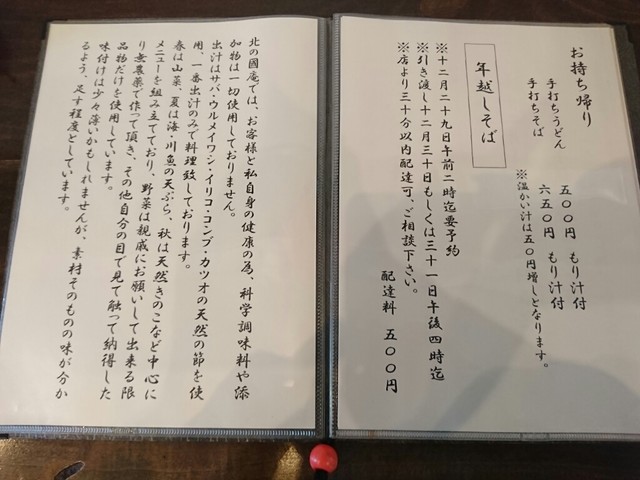 お持ち帰り
手打ちうどん 五〇〇円 もり汁付
手打ちそば 六五〇円 もり汁付
※温かい汁は五〇円増しとなります。
年越しそば
※十二月二十九日午前二時迄要予約
※引き渡し十二月三十日もしくは三十一日午後四時迄
※店より三十分以内配達可、ご相談下さい。
配達料 五〇〇円
北の國庵では、お客様と私自身の健康の為、科学調味料や添
加物は一切使用しておりません。
出汁はサバ・ウルメイワシ・イリコ・コンブ・カツオの天然の節を使
用、一番出汁のみで料理致しております。
春は山菜、夏は海・川魚の天ぷら、秋は天然きのこなど中心に
メニューを組み立てており、野菜は親戚にお願いして出来る限
り無農薬で作って頂き、その他自分の目で見て触って納得した
品物だけを使用しています。
味付けは少々薄いかもしれませんが、素材そのものの味が分か
るよう、足す程度としています。